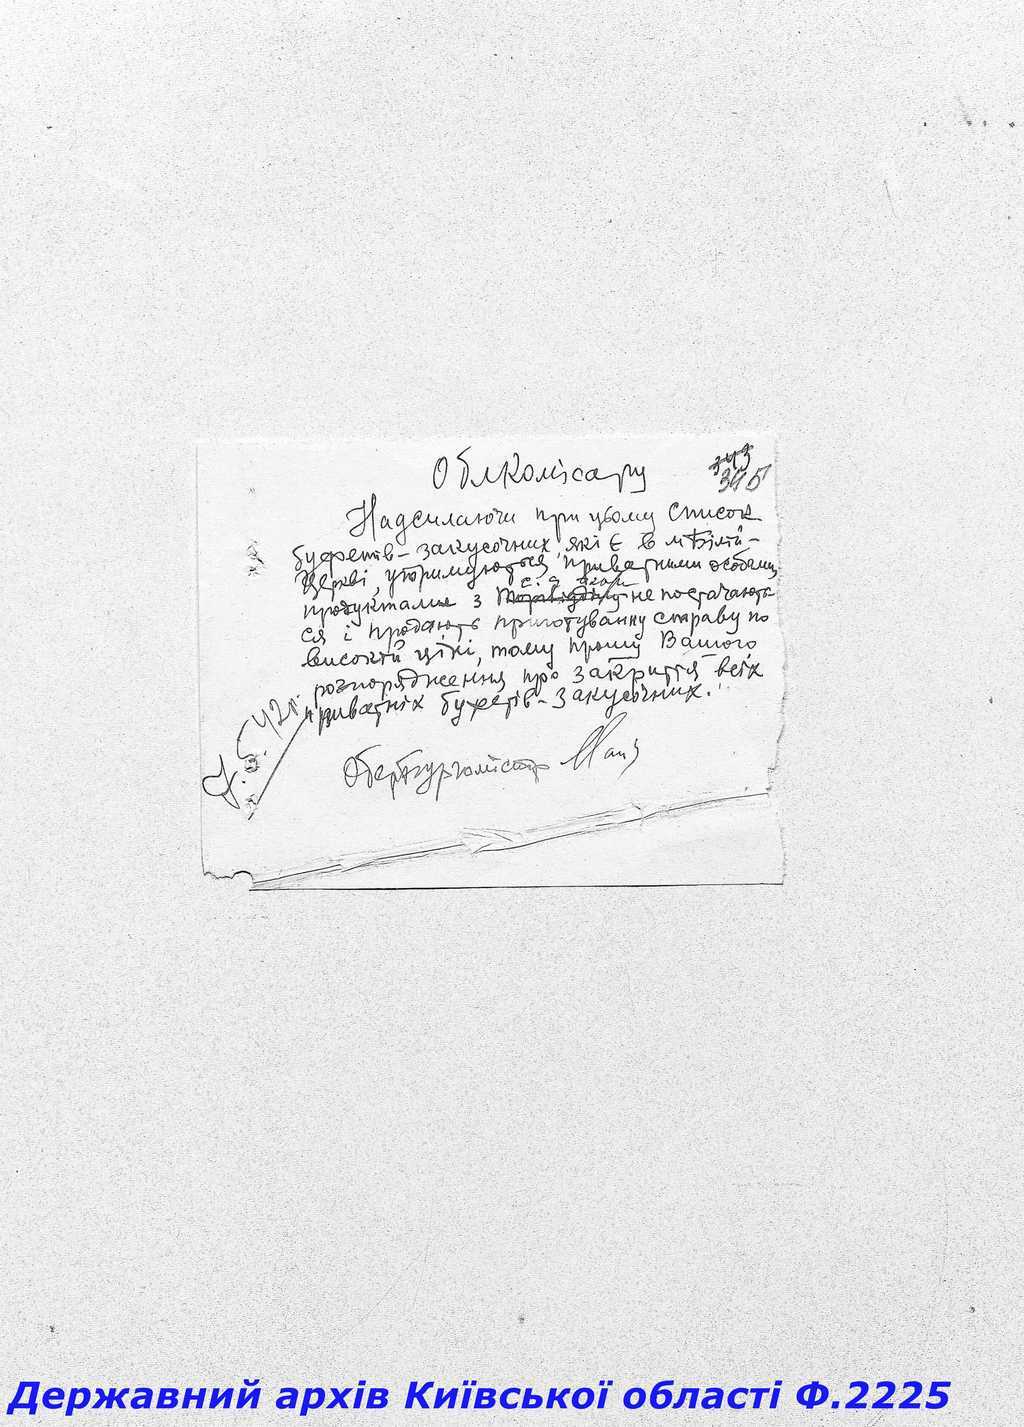 Облкомісару
343
345
Надсилаючи при цьому список
буфетів-закусочних, які є в м Білій-
Церкві, утримуються приватними особами,
продуктами з не постачають
ся і продають приготуванну страву по
високій ціні, тому прошу Вашого
розпорядження про закриття всіх
приватніх буфетів-закусочних.
42 р.
Обербургомістр
Державний архів Київської області Ф.2225